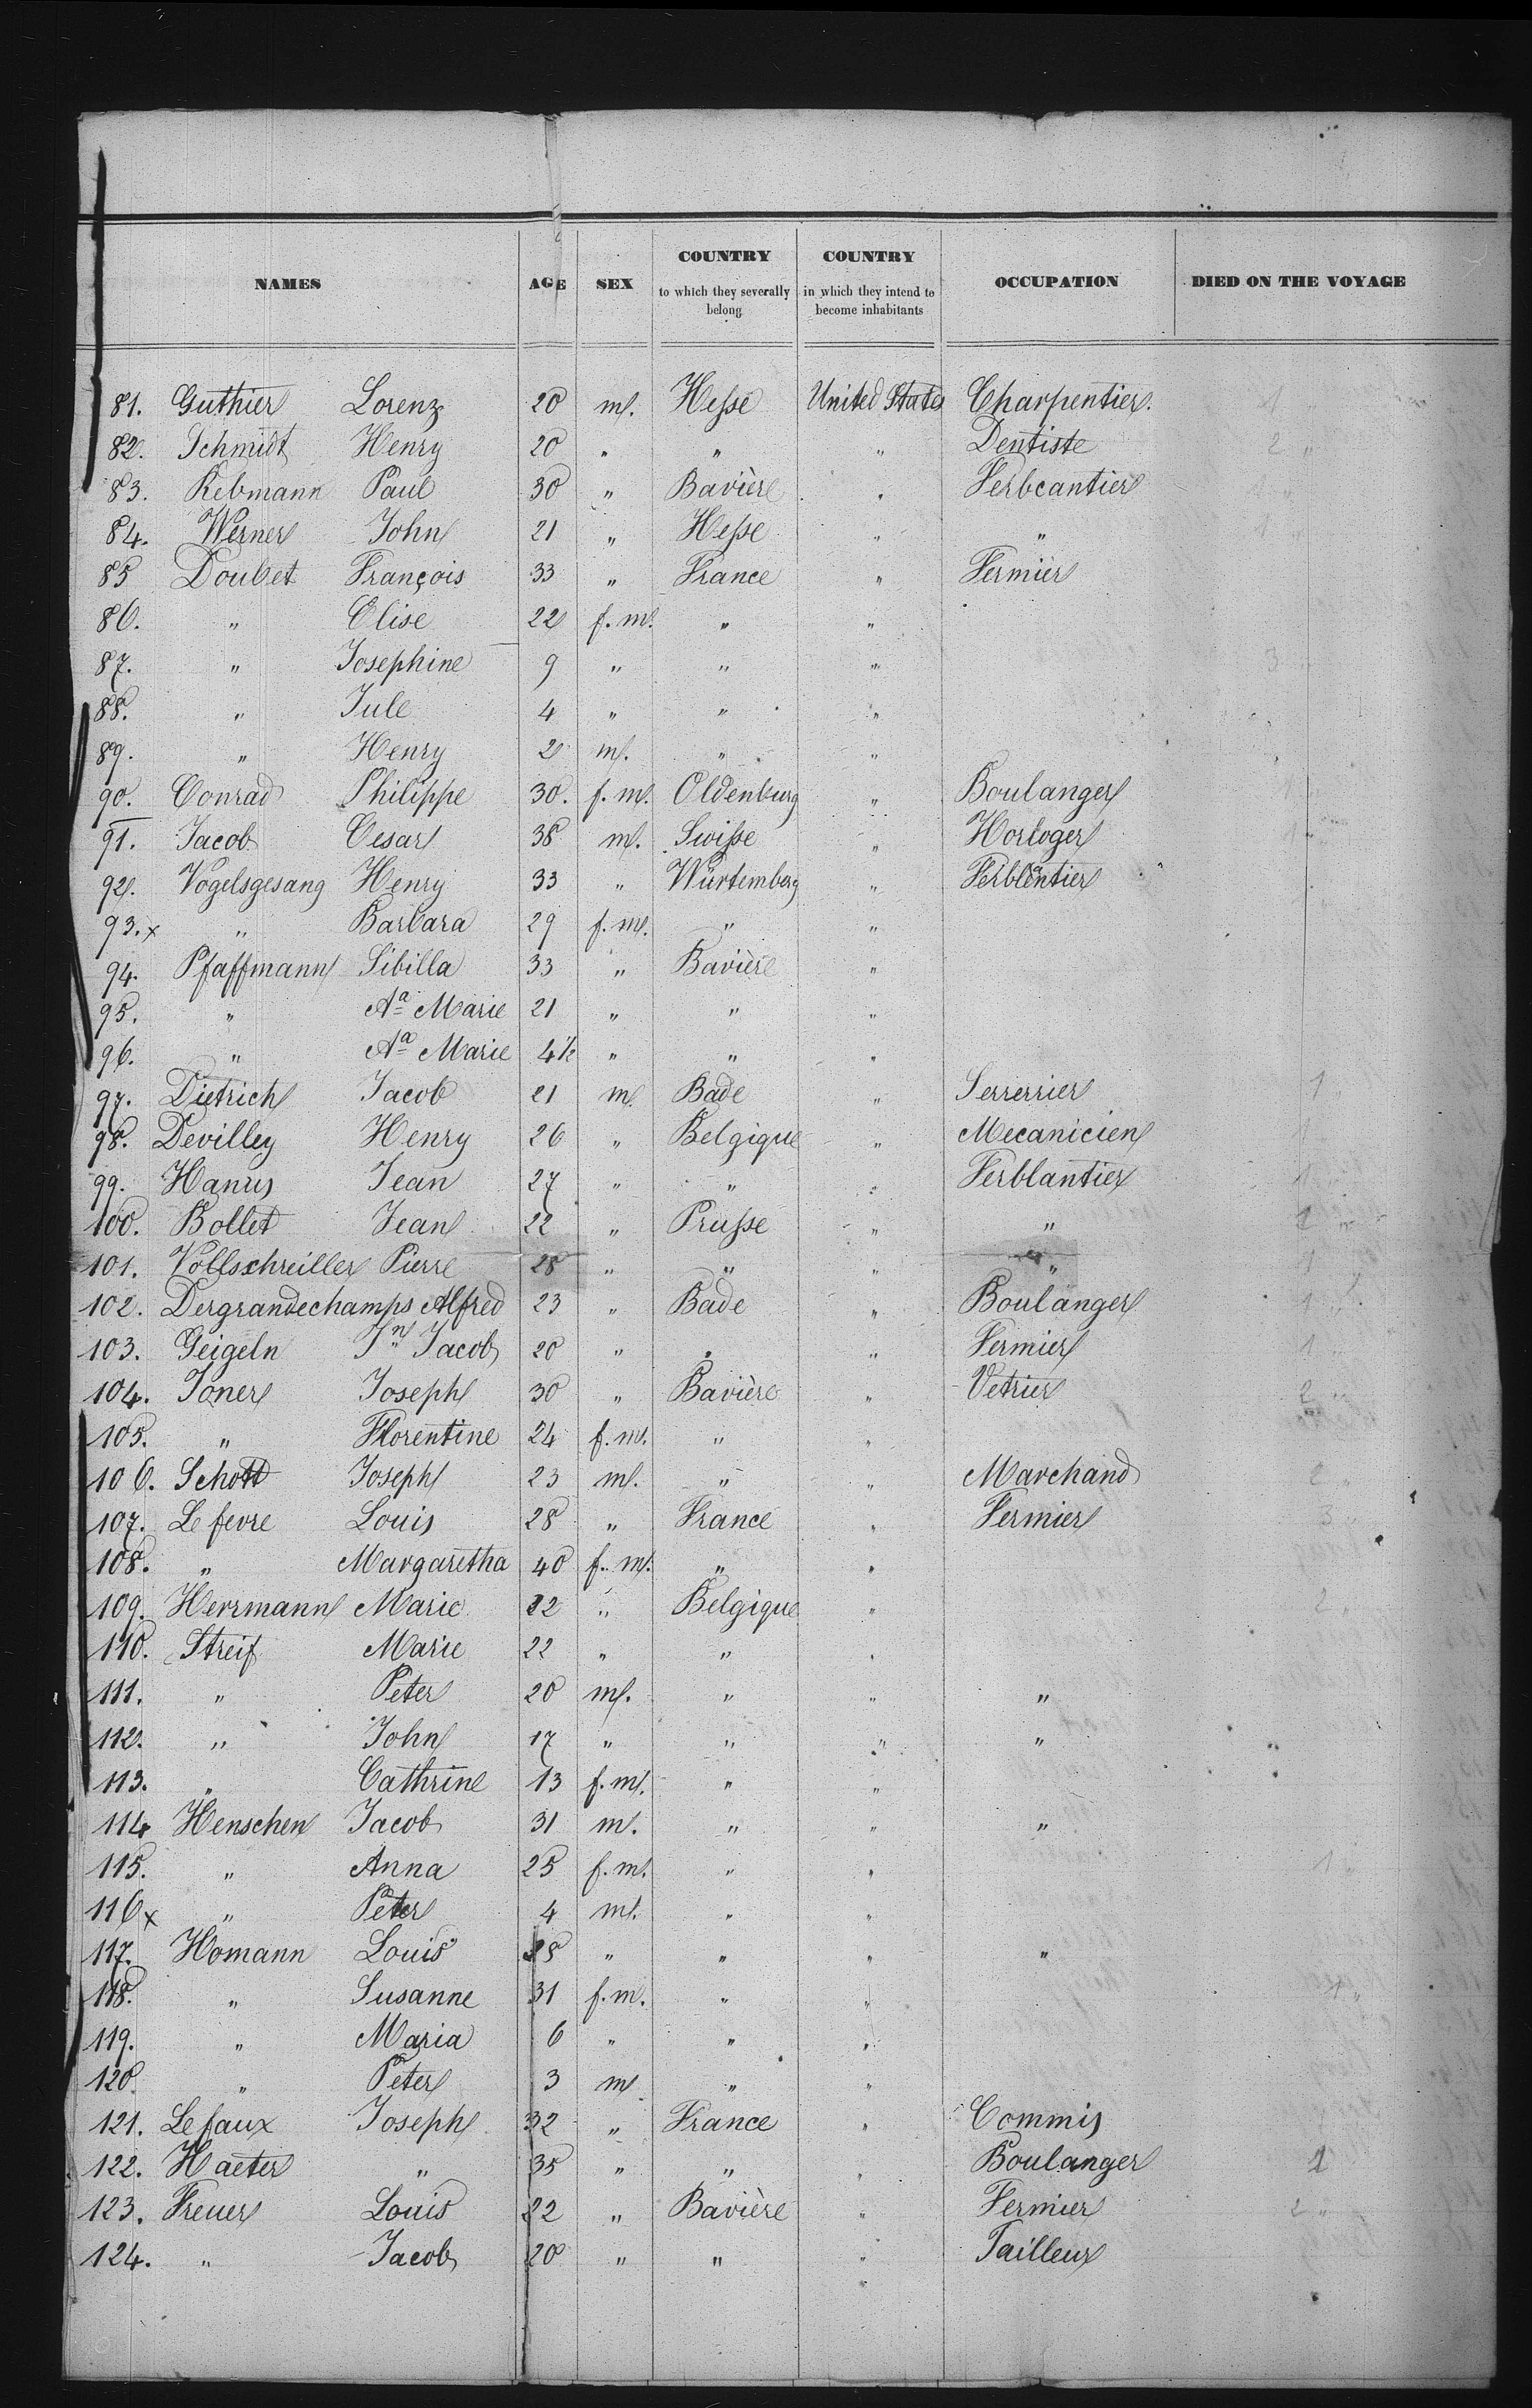 NAMES AGE SEX COUNTRY to which they severally belong COUNTRY in which they intend to become inhabitants OCCUPATION DIED ON THE VOYAGE
81. Guthier Lorenz 20 m. Hesse United States Charpentier.
82. Schmidt Henry 20 " " " Dentiste
83. Rebmann Paul 30 " Bavière " Ferbcantier
84. Werner John 21 " Hesse " "
85 Doubet François 33 " France " Fermier
86. " Elise 22 f. m. " "
87. " Josephine 9 " " "
88. " Jule 4 " " "
89. " Henry 2 m. " "
90. Conrad Philippe 30. f. m. Oldenburg " Boulanger
91. Jacob Cesar 38 m. Swisse " Horloger
92. Vogelsgesang Henry 33 " Würtemberg " Ferblentier
93. x " Barbara 29 f. m. " "
94. Pfaffmann Sibilla 33 " Bavière "
95. " Aª Marie 21 " " "
96. " Aª Marie 4½ " " "
97. Dietrich Jacob 21 m. Bade " Serrerrier 1 "
98. Devilley Henry 26 " Belgique " Mecanicien 1
99. Hanus Jean 27 " " " Ferblantier 1
100. Bollet Jean 22 " Prusse " " 1 "
101. Vollschreiller Pierre 28 " " " " 1
102. Dergrandechamps Alfred 23 " Bade " Boulanger 1 "
103. Geigeln Jn Jacob 20 " " " Fermier 1
104. Joner Joseph 30 " Bavière " Vetrier 2 "
105. " Florentine 24 f. m. " "
106. Schott Joseph 23 m. " " Marchand
107. Lefevre Louis 28 " France " Fermier 3
108. " Margaretha 40 f. m. " "
109. Herrmann Marie 22 " Belgique " 2 "
110. Streif Marie 22 " " "
111. " Peter 20 m. " " "
112. " John 17 " " " "
113. " Cathrine 13 f. m. " "
114 Henschen Jacob 31 m. " " "
115. " Anna 25 f. m. " " 1
116 x " Peter 4 m. " "
117. Homann Louis 28 " " " "
118. " Susanne 31 f. m. " " 1 "
119. " Maria 6 " " "
120. " Peter 3 m " "
121. Lefaux Joseph 32 " France " Commis
122. Haeter " 35 " " " Boulanger 1
123. Freuer Louis 22 " Bavière " Fermier 2 "
124. " Jacob 20 " " " Tailleur